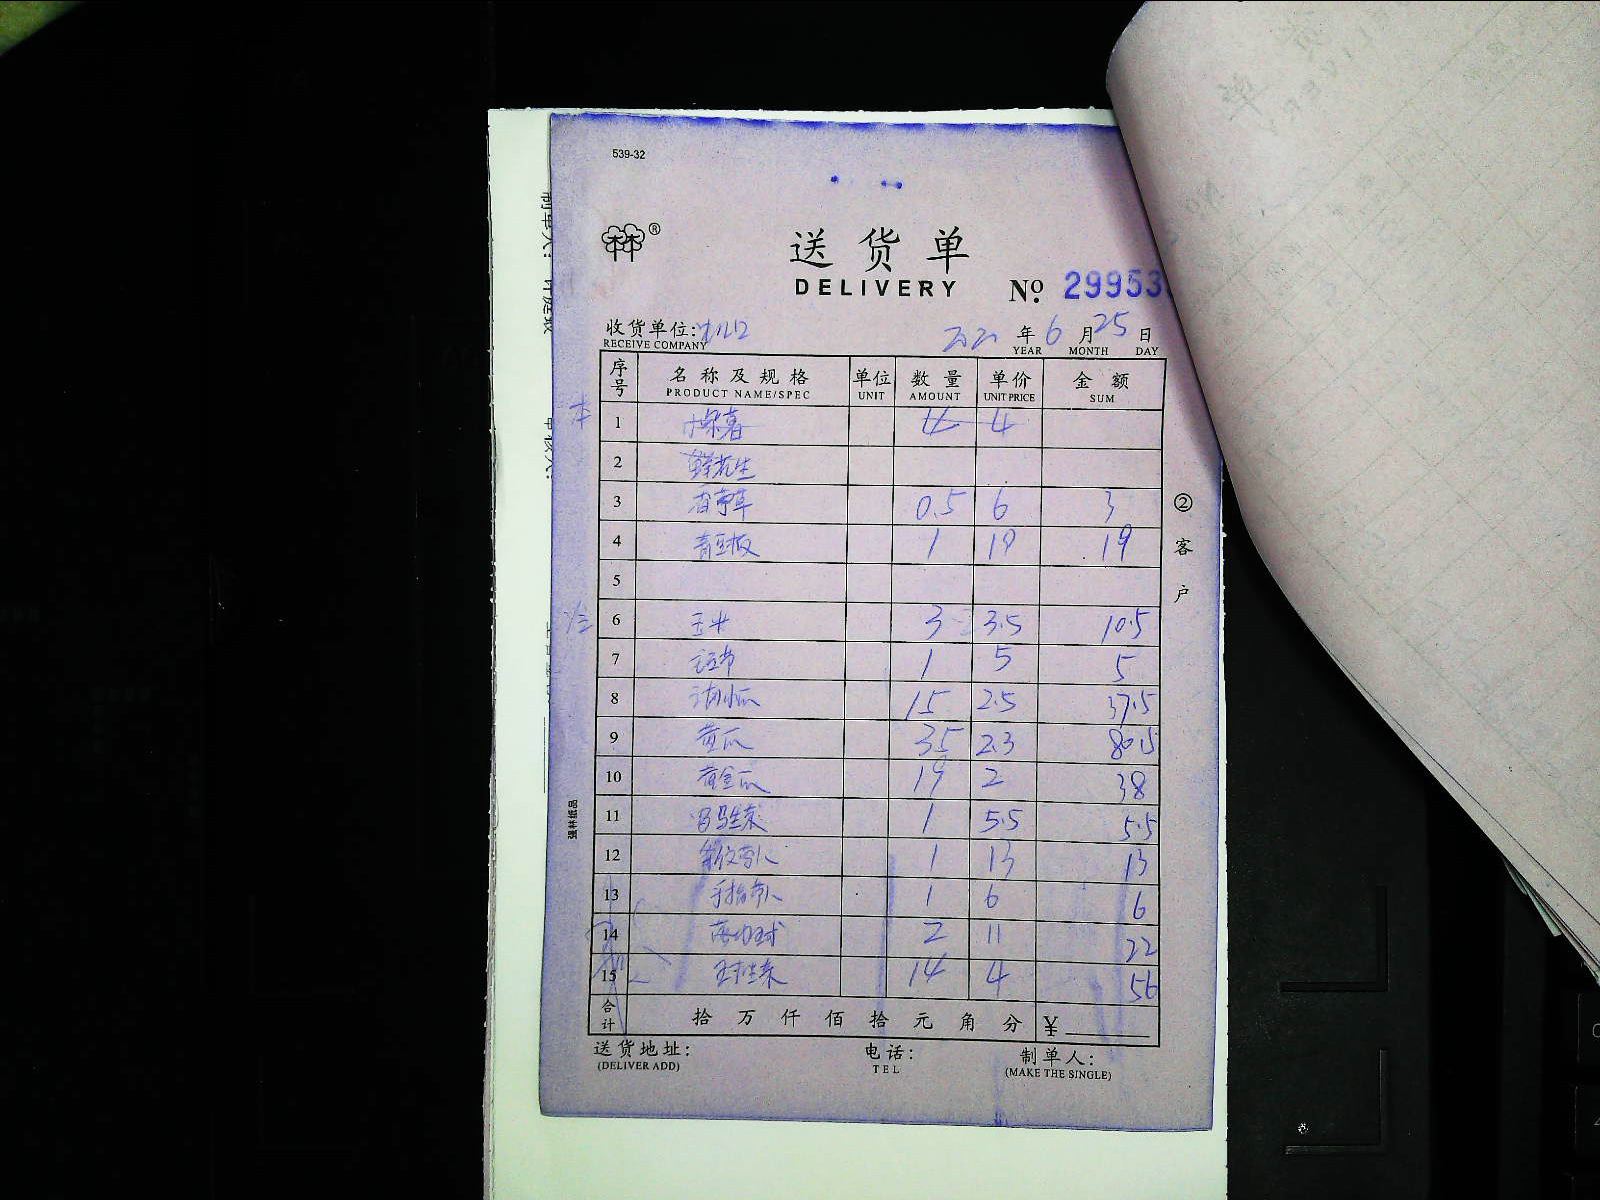 539-32
林®
送货单
DELIVERY
No. 29953
收货单位:
RECEIVE COMPANY
2021 年 6 月 25 日
YEAR MONTH DAY
序号 名称及规格 单位 数量 单价 金额
PRODUCT NAME/SPEC UNIT AMOUNT UNIT PRICE SUM
1 4 4
2
3 香茅草 0.5 6 3
4 青豆板 1 19 19
5
6 玉米 3 3.5 10.5
7 1 5 5
8 15 2.5 37.5
9 黄瓜 35 2.3 80.5
10 黄金瓜 19 2 38
11 罗马生菜 1 5.5 5.5
12 1 13 13
13 1 6 6
14 2 11 22
15 球生菜 14 4 56
合计 拾万仟佰拾元角分 ¥
送货地址: 电话: 制单人:
(DELIVER ADD) TEL (MAKE THE SINGLE)
②客户
强林纸品